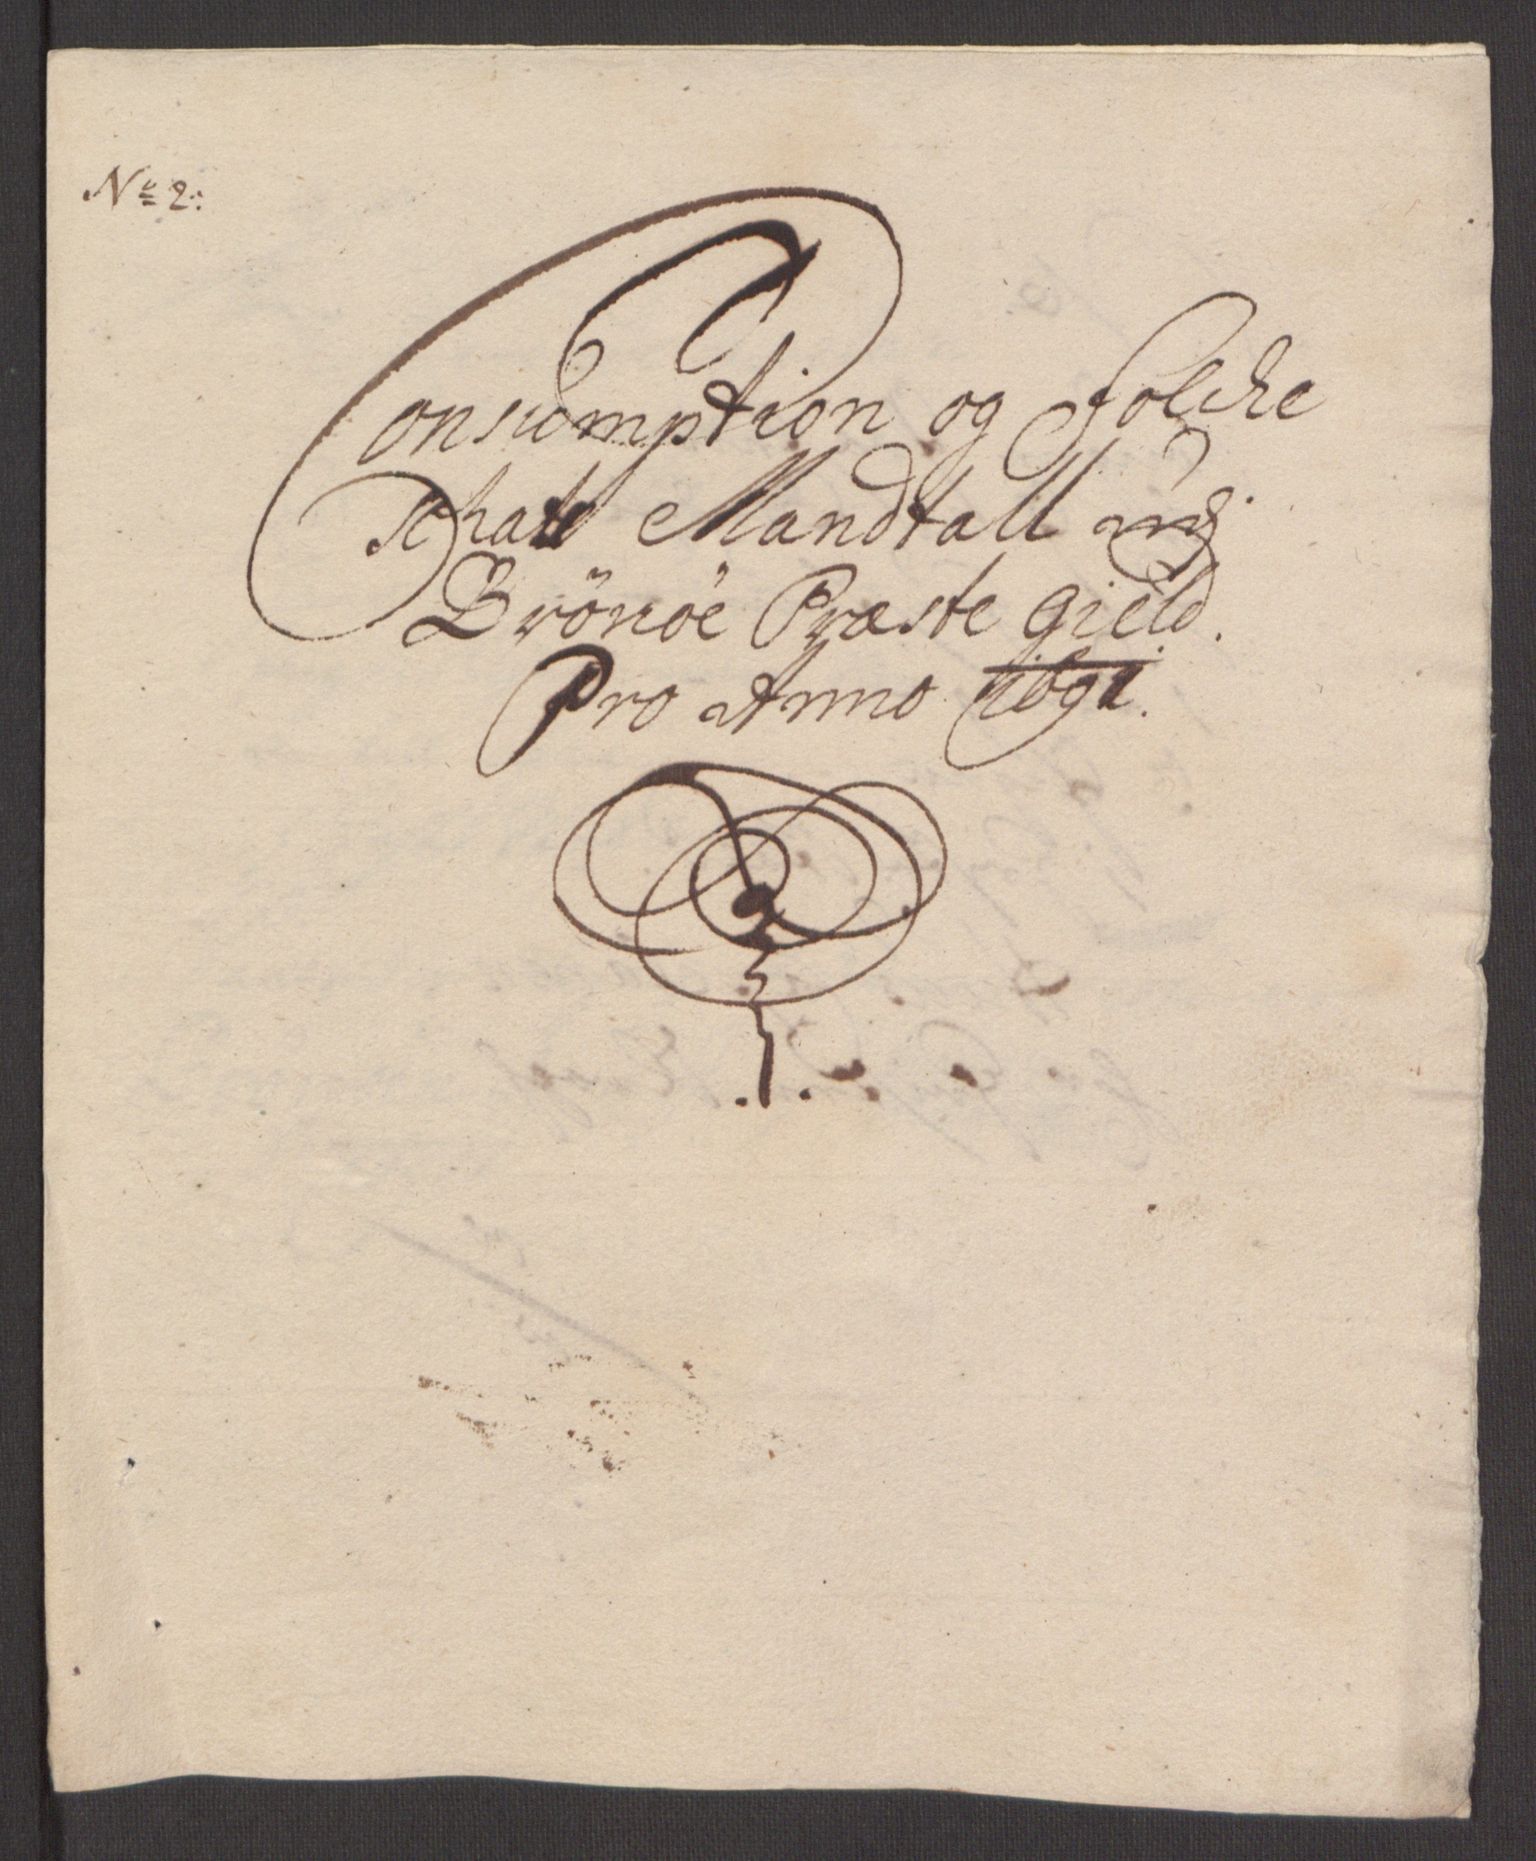 No 2:
Consumption og Folche
schatt Mandtall
Brönöe Præste gield.
Pro Anno 1691.